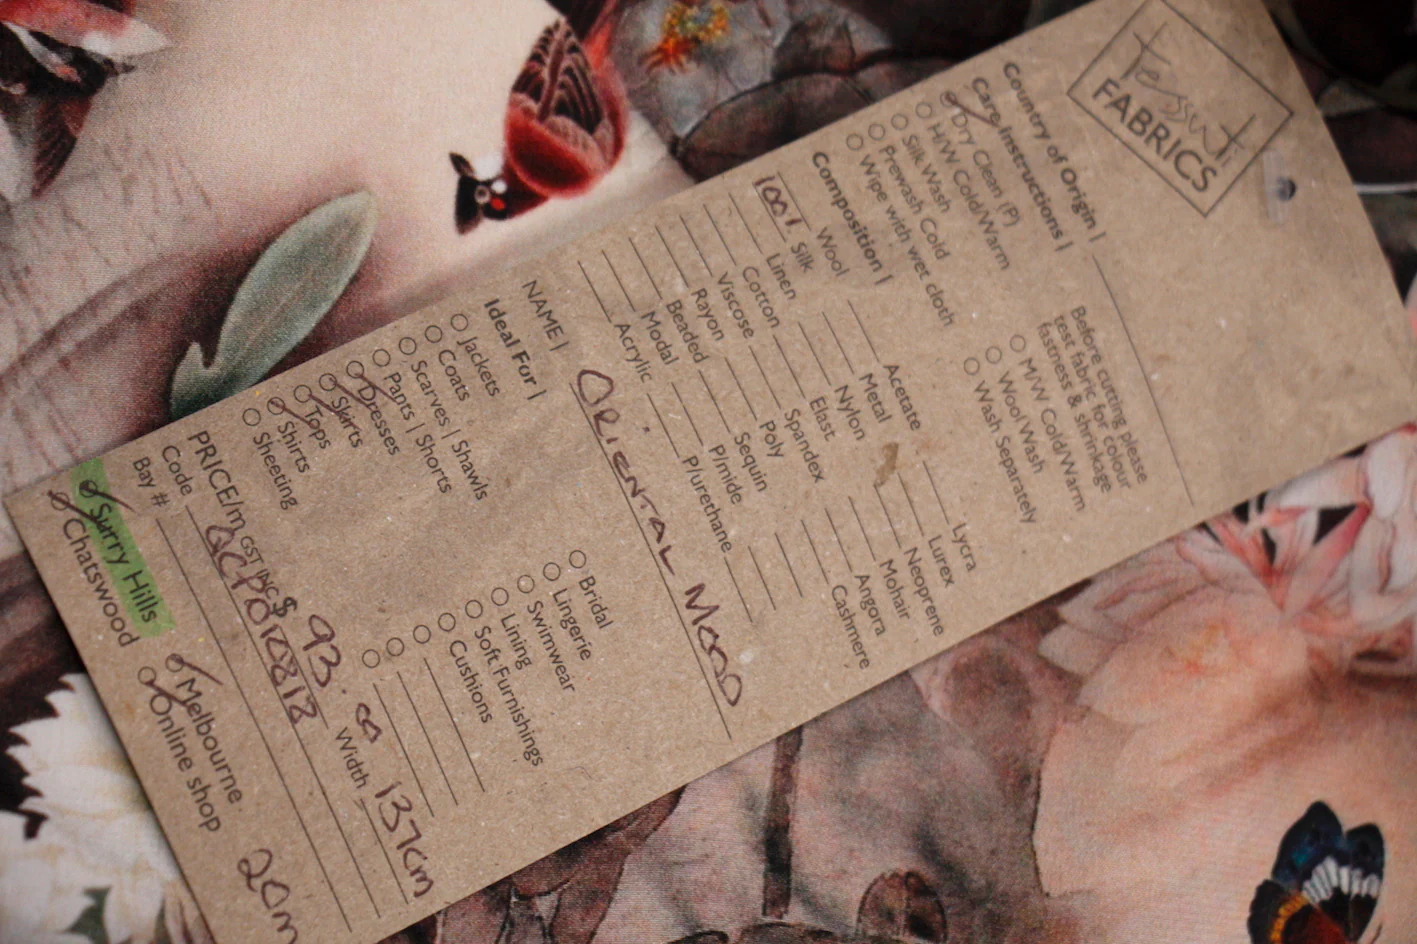 Tessuti
FABRICS
Country of Origin |
Care Instructions |
Dry Clean (P)
H/W Cold/Warm
Silk Wash
Prewash Cold
Wipe with wet cloth
Before cutting please
test fabric for colour
fastness & shrinkage
M/W Cold/Warm
Wool Wash
Wash Separately
Composition |
Wool Acetate Lycra
100% Silk Metal Lurex
Linen Nylon Neoprene
Cotton Elast Mohair
Viscose Spandex Angora
Rayon Poly Cashmere
Beaded Sequin
Modal P/mide
Acrylic P/urethane
NAME | ORIENTAL MOOD
Ideal For |
Jackets Bridal
Coats Lingerie
Scarves | Shawls Swimwear
Pants | Shorts Lining
Dresses Soft Furnishings
Skirts Cushions
Tops
Shirts
Sheeting
PRICE/m GST INC $ 93.00 Width 137cm
Code
Bay #
Surry Hills Melbourne
Chatswood Online shop
20m